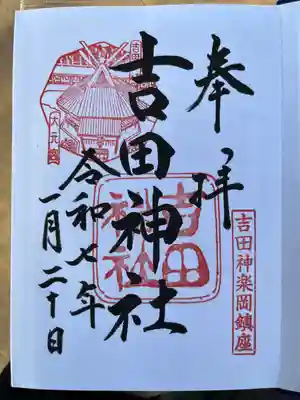 奉拝
吉田神楽岡鎮座
吉田神社
吉田
神社
大元宮
令和七年
一月二十日